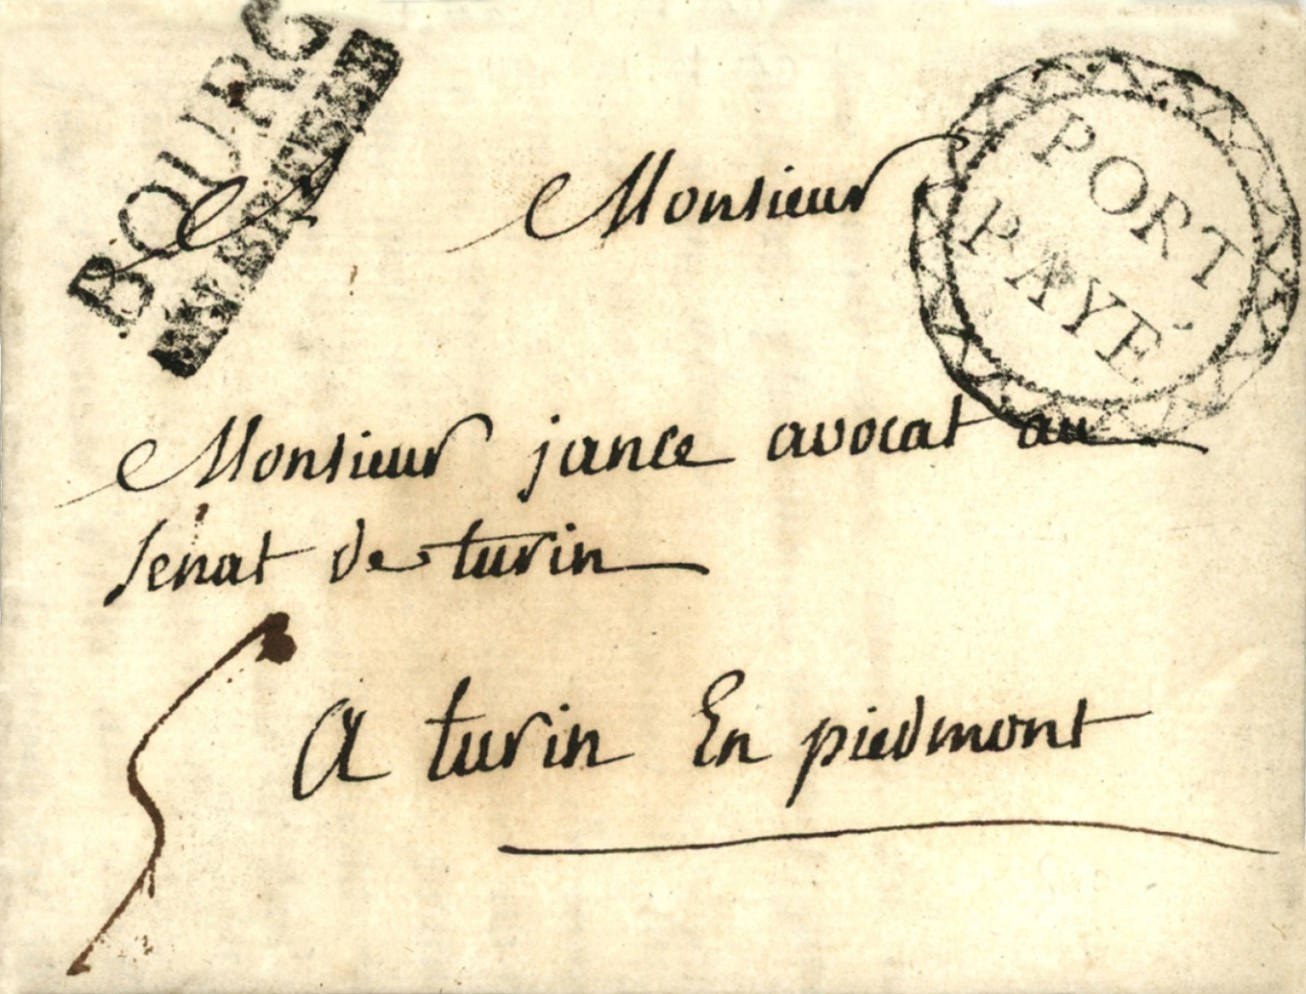 BOURG
EN BRESSE
PORT
PAYÉ
A Monsieur
Monsieur jance avocat au
senat de turin
A turin En piedmont
5